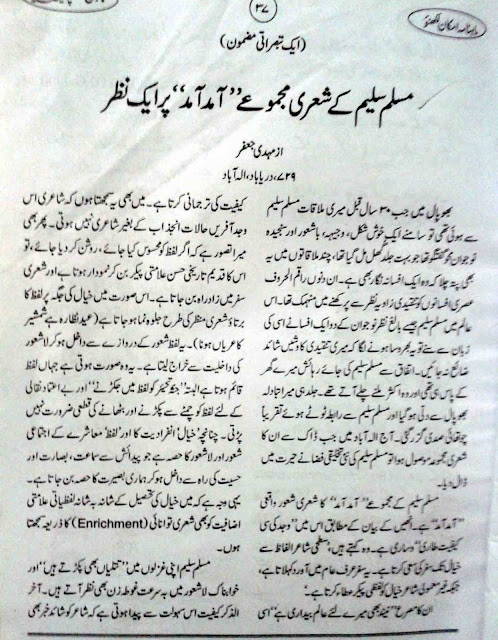 ماہنامہ امکان لکھنؤ
۳۷
(ایک تبصراتی مضمون)
مسلم سلیم کے شعری مجموعے ”آمد آمد“ پر ایک نظر
از مہدی جعفر
۷۲۹، دریاباد، الہ آباد
بھوپال میں جب ۳۰ سال قبل میری ملاقات مسلم سلیم
سے ہوئی تھی تو سامنے ایک خوش شکل، وجیہہ، باشعور اور سنجیدہ
نوجوان محو گفتگو تھا جو بہت جلد گھل مل گیا تھا، چند ملاقاتوں میں یہ
بھی پتہ چلا کہ وہ ایک افسانہ نگار بھی ہے۔ ان دنوں راقم الحروف
عصری افسانوں کو تنقیدی زاویہ نظر سے پرکھنے میں منہمک تھا۔ اس
عالم میں مسلم سلیم جیسے بالغ نظر نوجوان کے دو ایک افسانے اسی کی
زبان سے سنے تو یہ بھروسہ ہونے لگا کہ میری تنقیدی کاوشیں شائد
ضائع نہ جائیں۔ اتفاق سے مسلم سلیم کی جائے رہائش میرے گھر
کے پاس ہی تھی اور وہ اکثر ملنے چلے آتے تھے۔ جلد ہی میرا تبادلہ
بھوپال سے دلی ہو گیا اور مسلم سلیم سے رابطہ ٹوٹے ہوئے تقریباً
چوتھائی صدی گزر گئی۔ آج الہ آباد میں جب ڈاک سے ان کا
شعری مجموعہ موصول ہوا تو مسلم سلیم کی نئی تخلیقی فضا نے حیرت میں
ڈال دیا۔
مسلم سلیم کے مجموعے ”آمد آمد“ کا شعری شعور واقعی
”آمد آمد“ ہے۔ انھیں کے بیان کے مطابق اس میں ”وجد کی سی
کیفیت طاری“ و ساری ہے۔ وہ کہتے ہیں؛ سطحی شاعر الفاظ سے
خیال تک سفر کی سعی کرتا ہے۔ یہ سفر عرف عام میں آورد کہلاتا ہے،
جبکہ غیر معمولی شاعر خیال کو لفظی پیکر عطا کرتا ہے۔
ان کا مصرع ”نیند بھی میرے لئے عالم بیداری ہے“ اسی
کیفیت کی ترجمانی کرتا ہے۔ میں بھی یہ سمجھتا ہوں کہ شاعری اس
وجد آفریں حالات انجذاب کے بغیر شاعری نہیں ہوتی۔ پھر بھی
میرا تصور ہے کہ اگر لفظ کو محسوس کیا جائے، روشن کر دیا جائے، تو
اس کا قدیم تاریخی حسن علامتی پیکر بن کر نمودار ہوتا ہے اور شعری
سفر میں زاد راہ بن جاتا ہے۔ اس صورت میں خیال کی جگہ پر لفظ کا
برتاؤ شعری منظر کی طرح جلوہ نما ہو جاتا ہے (عید نظارہ ہے شمشیر
کا عریاں ہونا)۔ یہ لفظ شعور کے دروازے سے داخل ہو کر لاشعور
کی داخلیت سے خراج لیتا ہے۔ یہ وہ صورت ہوتی ہے جہاں لفظ
قائم ہوتا ہے البتہ ”جذبہ تحیر کو لفظ میں جکڑنے“ اور بے اعتماد نقالی
کے لئے لفظ کو چمٹے سے پکڑنے اور بٹھانے کی قطعی ضرورت نہیں
پڑتی۔ چنانچہ ’خیال‘ انفرادیت کا اور ’لفظ‘ معاشرے کے اجتماعی
شعور اور لاشعور کا حصہ ہے جو پیدائش سے سماعت، بصارت اور
حسیت کی راہ سے داخل ہو کر ہماری بصیرت کا حصہ بن جاتا ہے۔
یہی وجہ ہے کہ میں خیال کی تحصیل کے شانہ بہ شانہ لفظیاتی علامتی
اضافیت کو بھی شعری توانائی (Enrichment) کا ذریعہ سمجھتا
ہوں۔
مسلم سلیم اپنی غزلوں میں ”تتلیاں بھی پکڑتے ہیں“ اور
خوابناک لاشعور میں بہ سرعت غوطہ زن بھی نظر آتے ہیں۔ آخر
الذکر کیفیت اس سہولت سے پیدا ہوتی ہے کہ شاعر کو شائد خبر بھی